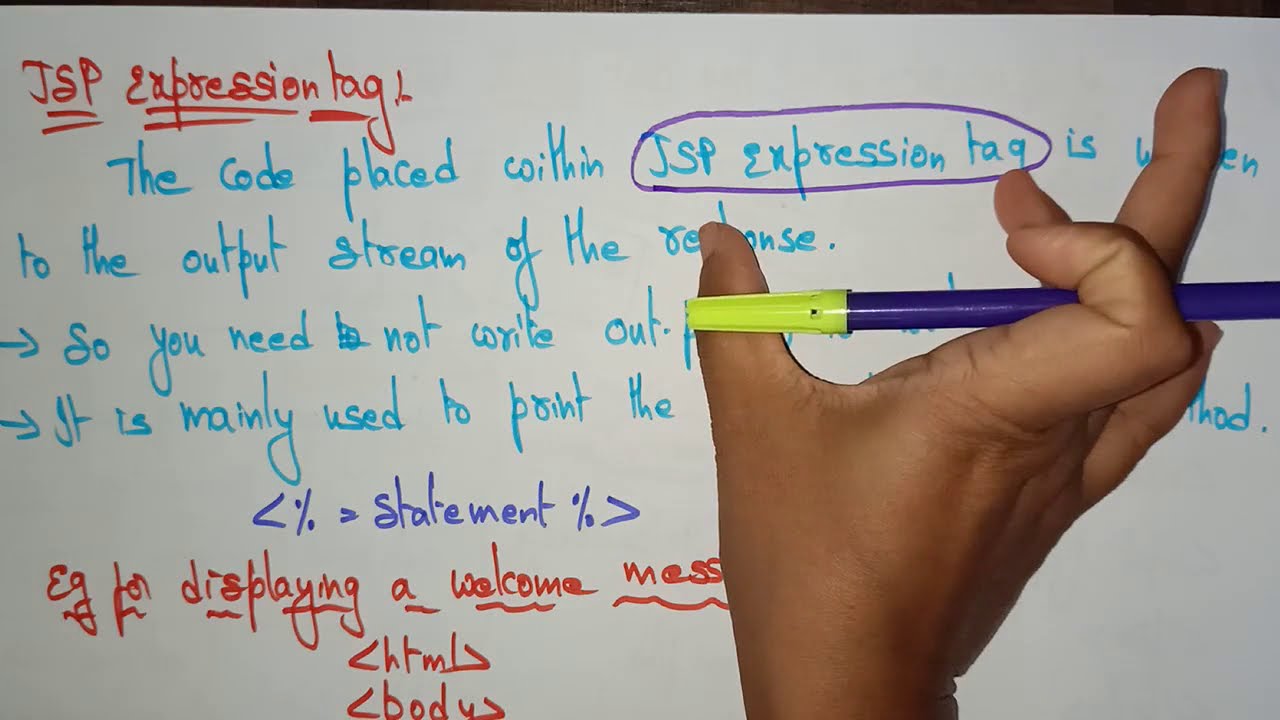 JSP Expression tag:-
The Code placed within JSP Expression tag is
to the output stream of the response.
→ So you need not write out.
→ It is mainly used to print the
<% = statement %>
Eg for displaying a welcome
<html>
<body>